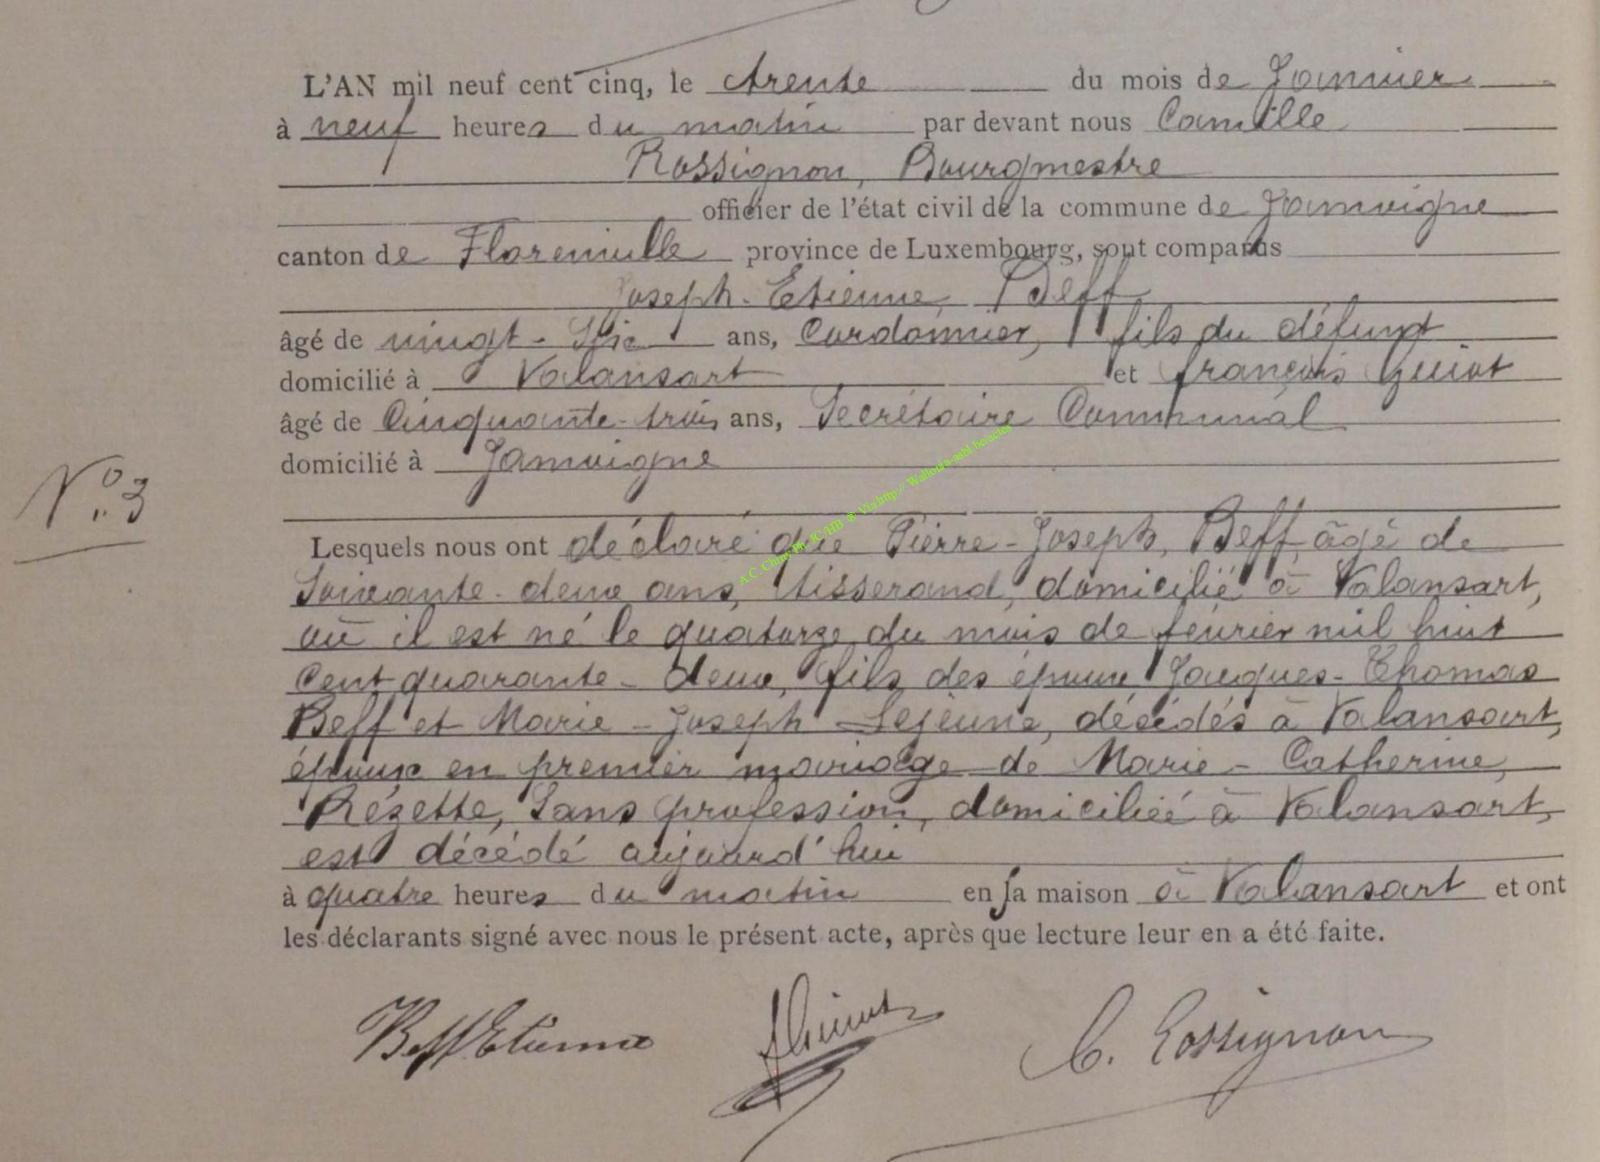 L'AN mil neuf cent cinq, le trente du mois de Janvier
à neuf heures du matin par devant nous Camille
Rossignon, Bourgmestre
officier de l'état civil de la commune de Jamoigne
canton de Florenville province de Luxembourg, sont comparus
Joseph-Etienne, Beff
âgé de vingt-six ans, Cordonnier, fils du défunt
domicilié à Valansart et françois Guiot
âgé de Cinquante-trois ans, Secrétaire Communal
domicilié à Jamoigne
N° 3
Lesquels nous ont déclaré que Pierre-Joseph, Beff, âgé de
Soixante-deux ans, tisserand, domicilié à Valansart,
où il est né le quatorze du mois de février mil huit
Cent quarante-deux, fils des époux Jacques-Thomas
Beff et Marie-Joseph Lejeune, décédés à Valansart,
époux en premier mariage de Marie-Catherine,
Rézette, Sans profession, domiciliée à Valansart,
est décédé aujourd'hui
à quatre heures du matin en sa maison à Valansart et ont
les déclarants signé avec nous le présent acte, après que lecture leur en a été faite.
Beff Etienne fGuiot C. Rossignon